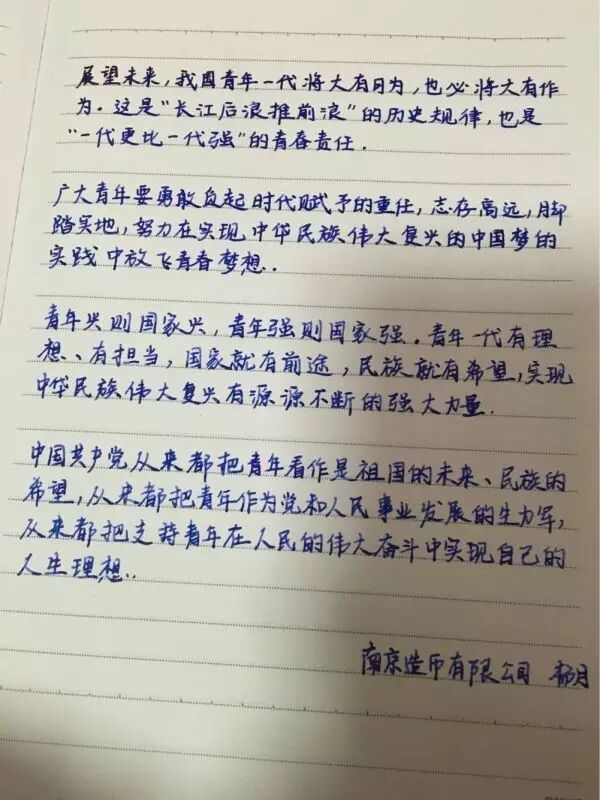 展望未来，我国青年一代将大有可为，也必将大有作
为。这是“长江后浪推前浪”的历史规律，也是
“一代更比一代强”的青春责任．
广大青年要勇敢负起时代赋予的重任，志存高远，脚
踏实地，努力在实现中华民族伟大复兴的中国梦的
实践中放飞青春梦想．．
青年兴则国家兴，青年强则国家强．青年一代有理
想、有担当，国家就有前途，民族就有希望，实现
中华民族伟大复兴有源源不断的强大力量．
中国共产党从来都把青年看作是祖国的未来、民族的
希望，从来都把青年作为党和人民事业发展的生力军，
从来都把支持青年在人民的伟大奋斗中实现自己的
人生理想．．
南京造币有限公司 杨月